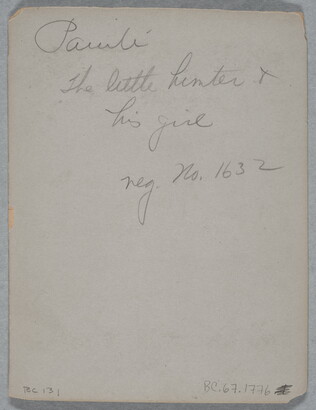 The little hunter &
his girl
neg. No. 1632
BC 131
BC.67.1776